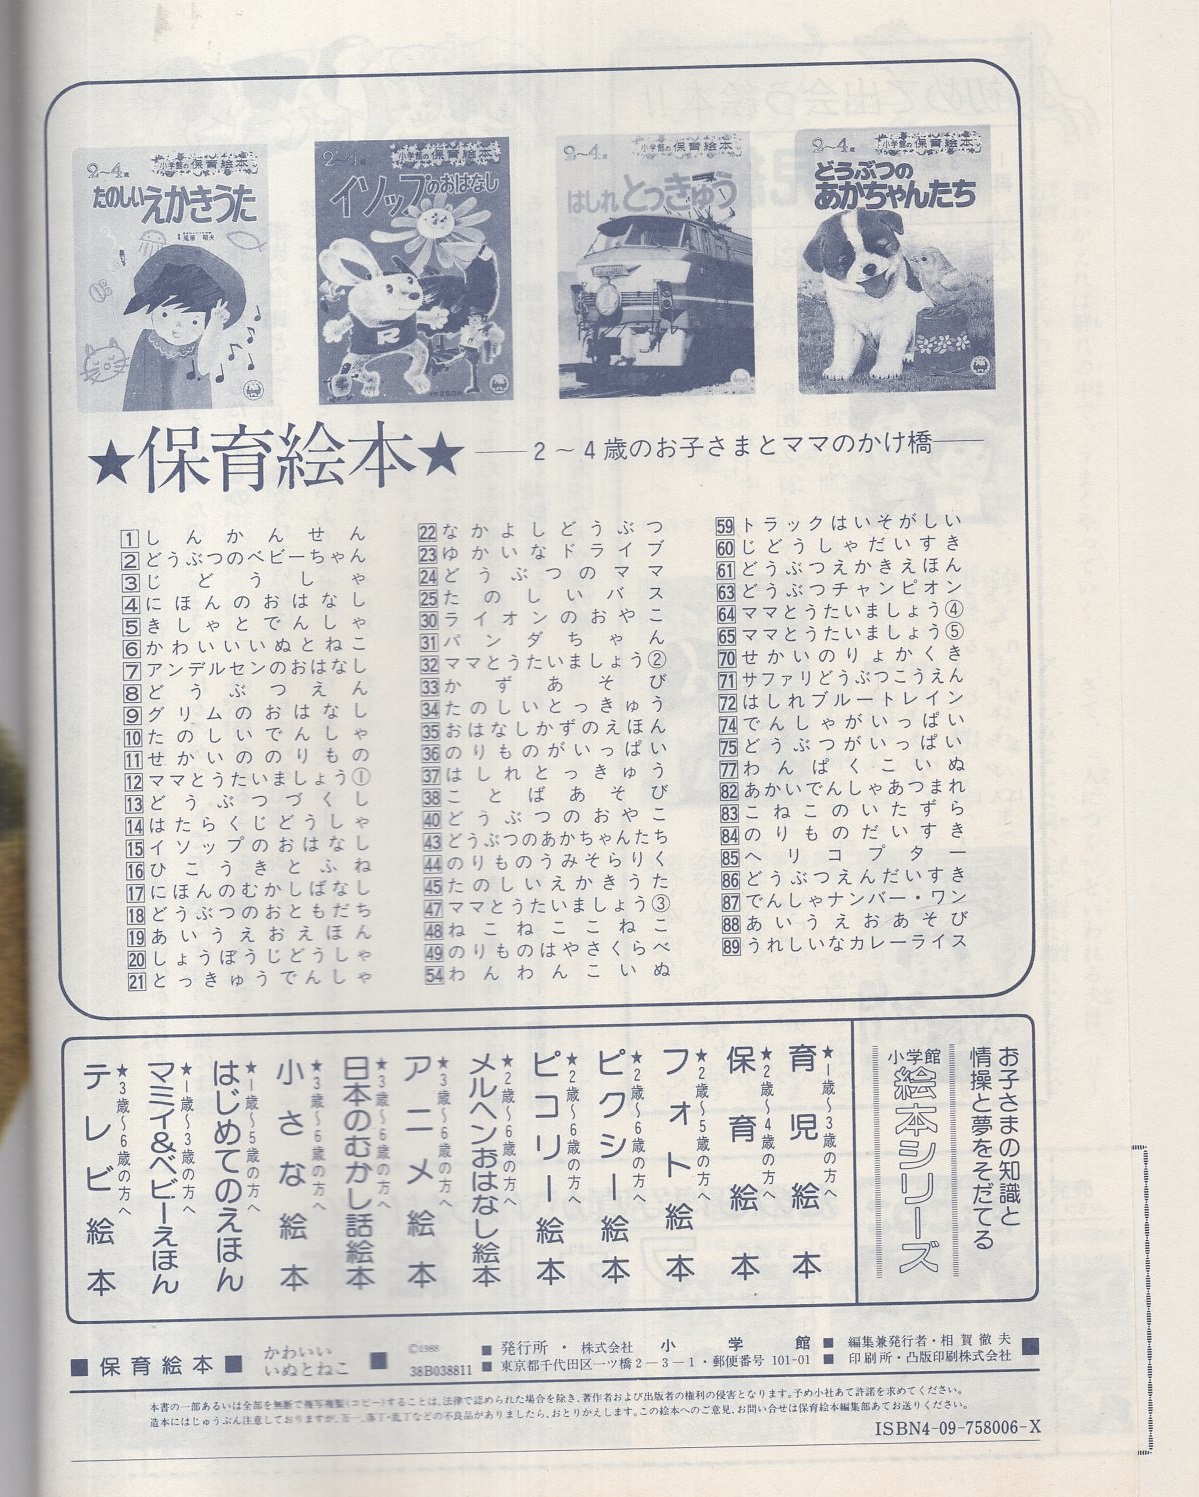 2〜4歳
小学館の保育絵本
たのしいえかきうた
2〜4歳
小学館の保育絵本
イソップのおはなし
R
2〜4歳
小学館の保育絵本
はしれとっきゅう
2〜4歳
小学館の保育絵本
どうぶつの
あかちゃんたち
★保育絵本★——2〜4歳のお子さまとママのかけ橋——
1 しんかんせん
2 どうぶつのベビーちゃん
3 じどうしゃ
4 にほんのおはなし
5 きしゃとでんしゃ
6 かわいいいぬとねこ
7 アンデルセンのおはなし
8 どうぶつえん
9 グリムのおはなし
10 たのしいでんしゃ
11 せかいののりもの
12 ママとうたいましょう①
13 どうぶつづくし
14 はたらくじどうしゃ
15 イソップのおはなし
16 ひこうきとふね
17 にほんのむかしばなし
18 どうぶつのおともだち
19 あいうえおえほん
20 しょうぼうじどうしゃ
21 とっきゅうでんしゃ
22 なかよしどうぶつ
23 ゆかいなドライブ
24 どうぶつのママ
25 たのしいバス
30 ライオンのおやこ
31 パンダちゃん
32 ママとうたいましょう②
33 かずあそび
34 たのしいとっきゅう
35 おはなしかずのえほん
36 のりものがいっぱい
37 はしれとっきゅう
38 ことばあそび
40 どうぶつのおやこ
43 どうぶつのあかちゃんたち
44 のりものうみそらりく
45 たのしいえかきうた
47 ママとうたいましょう③
48 ねこねここねこ
49 のりものはやさくらべ
54 わんわんこいぬ
59 トラックはいそがしい
60 じどうしゃだいすき
61 どうぶつえかきえほん
63 どうぶつチャンピオン
64 ママとうたいましょう④
65 ママとうたいましょう⑤
70 せかいのりょかくき
71 サファリどうぶつこうえん
72 はしれブルートレイン
74 でんしゃがいっぱい
75 どうぶつがいっぱい
77 わんぱくこいぬ
82 あかいでんしゃあつまれ
83 こねこのいたずら
84 のりものだいすき
85 ヘリコプター
86 どうぶつえんだいすき
87 でんしゃナンバー・ワン
88 あいうえおあそび
89 うれしいなカレーライス
お子さまの知識と
情操と夢をそだてる
小学館
絵本シリーズ
★1歳〜3歳の方へ
育児絵本
★2歳〜4歳の方へ
保育絵本
★2歳〜5歳の方へ
フォト絵本
★2歳〜6歳の方へ
ピクシー絵本
★2歳〜6歳の方へ
ピコリー絵本
★2歳〜6歳の方へ
メルヘンおはなし絵本
★3歳〜6歳の方へ
アニメ絵本
★3歳〜6歳の方へ
日本のむかし話絵本
★3歳〜6歳の方へ
小さな絵本
★1歳〜5歳の方へ
はじめてのえほん
★1歳〜3歳の方へ
マミイ&ベビーえほん
★3歳〜6歳の方へ
テレビ絵本
■保育絵本■ かわいい
いぬとねこ
■ ©1988
38B038811
■発行所・株式会社 小学館
■東京都千代田区一ツ橋2−3−1・郵便番号 101-01
■編集兼発行者・相賀徹夫
■印刷所・凸版印刷株式会社
■
本書の一部あるいは全部を無断で複写複製(コピー)することは、法律で認められた場合を除き、著作者および出版者の権利の侵害となります。予め小社あて許諾を求めてください。
造本にはじゅうぶん注意しておりますが、万一、落丁・乱丁などの不良品がありましたら、おとりかえします。この絵本へのご意見、お問い合せは保育絵本編集部あてお送りください。
ISBN4-09-758006-X